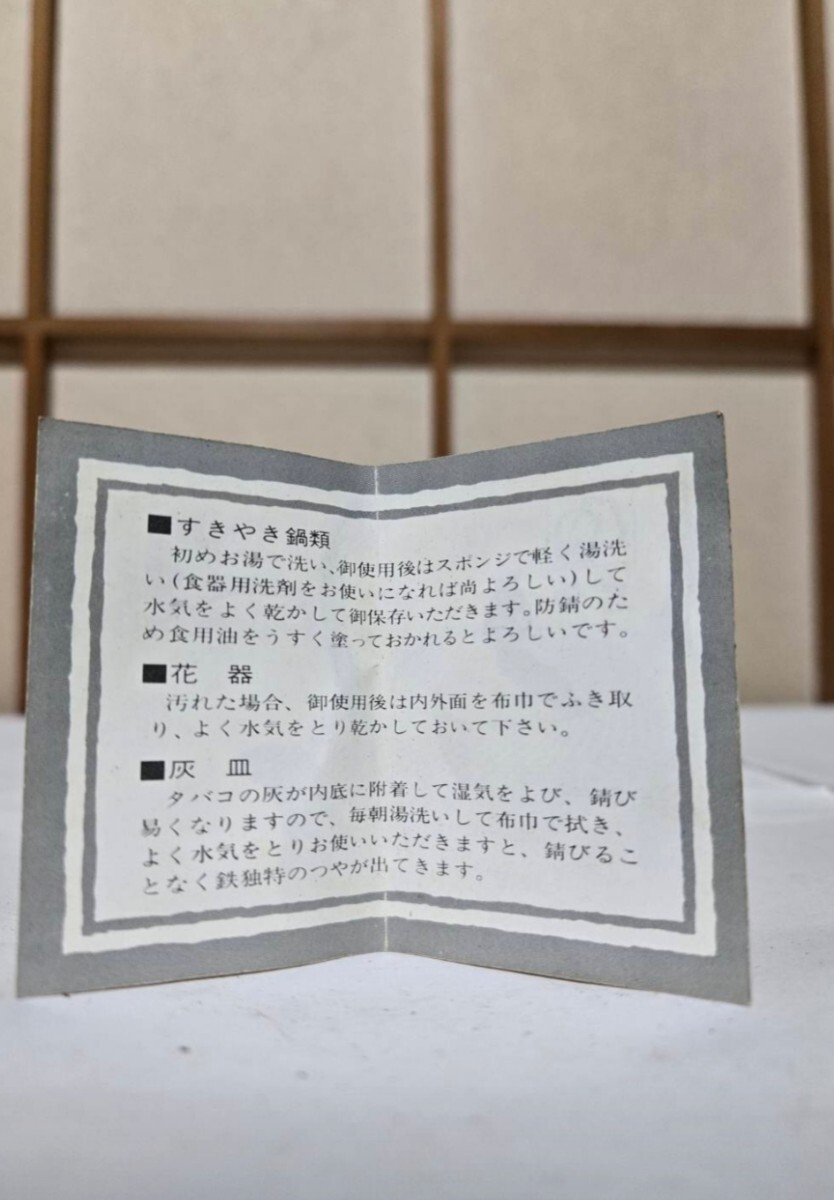 ■すきやき鍋類
初めお湯で洗い、御使用後はスポンジで軽く湯洗
い(食器用洗剤をお使いになれば尚よろしい)して
水気をよく乾かして御保存いただきます。防錆のた
め食用油をうすく塗っておかれるとよろしいです。
■花 器
汚れた場合、御使用後は内外面を布巾でふき取
り、よく水気をとり乾かしておいて下さい。
■灰 皿
タバコの灰が内底に附着して湿気をよび、錆び
易くなりますので、毎朝湯洗いして布巾で拭き、
よく水気をとりお使いいただきますと、錆びるこ
となく鉄独特のつやが出てきます。